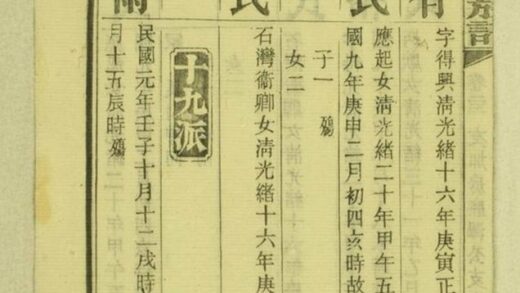 有
字得興清光緒十六年庚寅正
民
應起女清光緒二十年甲午五
國九年庚申二月初四亥時故
子一 殤
女二
民
石灣衞卿女清光緒十六年庚
十九派
民國元年壬子十月十二戌時
月十五辰時殤